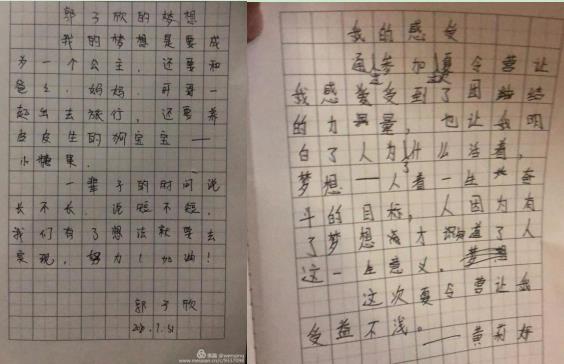 郭子欣的梦想
我的梦想是要成
为一个公主，还要和
爸爸、妈妈、哥哥一
起出去旅行，还要养
皮皮生的狗宝宝——
小糖果。
一辈子的时间说
长不长，说短不短，
我们有了想法就要去
实现，努力！加油！
郭子欣
我的感受
通过参加夏令营让
我感受到了团结
的力量，也让我明
白了人为了什么活着，
梦想——人着一生奋
斗的目标，人因为有
了梦想才知道了人
这一生意义。
这次夏令营让我
受益不浅。
——黄莉好